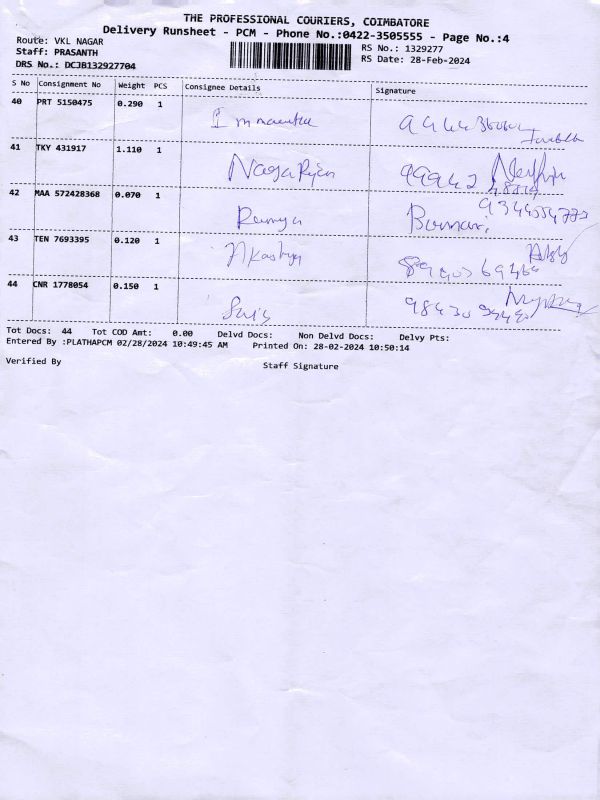 THE PROFESSIONAL COURIERS, COIMBATORE
Delivery Runsheet - PCM - Phone No.:0422-3505555 - Page No.:4
Route: VKL NAGAR
RS No.: 1329277
Staff: PRASANTH
RS Date: 28-Feb-2024
DRS No.: DCJB132927704
S No Consignment No Weight PCS Consignee Details Signature
40 PRT 5150475 0.290 1
41 TKY 431917 1.110 1 Nagarajan 99942
48779
42 MAA 572428368 0.070 1 Ramya
43 TEN 7693395 0.120 1 Akashya
44 CNR 1778054 0.150 1
Tot Docs: 44 Tot COD Amt: 0.00 Delvd Docs: Non Delvd Docs: Delvy Pts:
Entered By :PLATHAPCM 02/28/2024 10:49:45 AM Printed On: 28-02-2024 10:50:14
Verified By Staff Signature